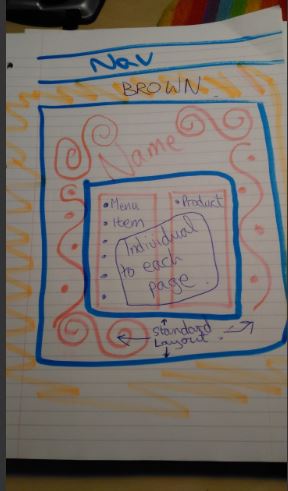 Nav
BROWN.
Name
• Menu
• Item
• Product
Individual
to each
page.
Standard
Layout